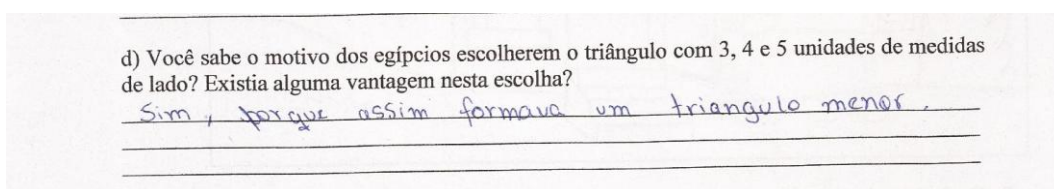 d) Você sabe o motivo dos egípcios escolherem o triângulo com 3, 4 e 5 unidades de medidas
de lado? Existia alguma vantagem nesta escolha?
Sim, porque assim formava um triangulo menor.